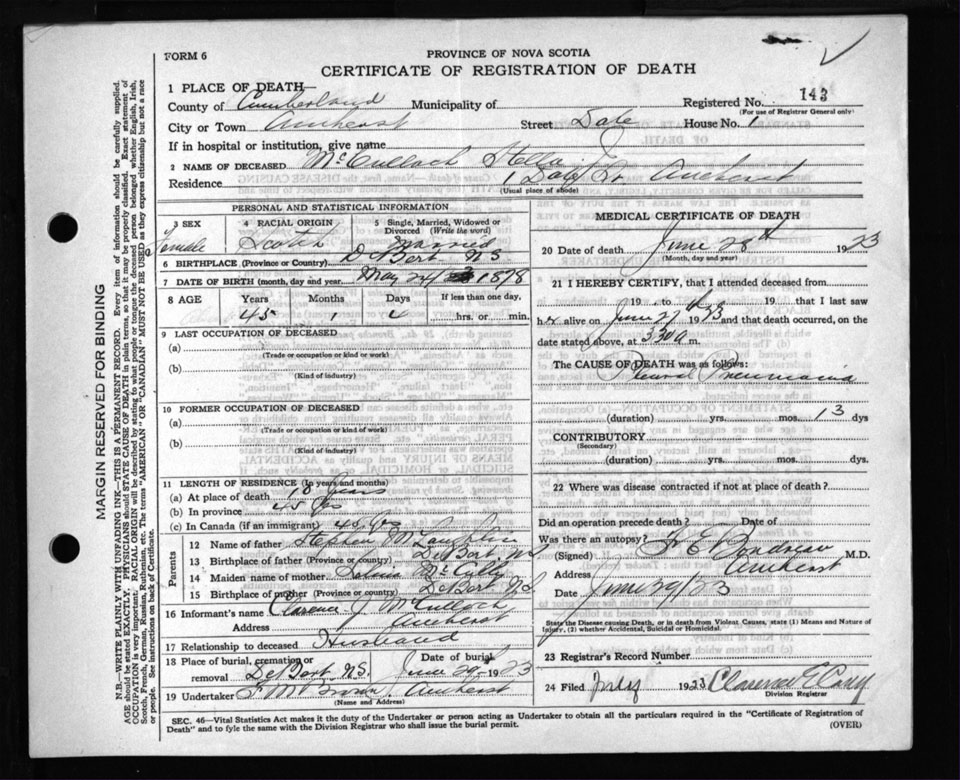 FORM 6
PROVINCE OF NOVA SCOTIA
CERTIFICATE OF REGISTRATION OF DEATH
1 PLACE OF DEATH—
County of Cumberland Municipality of Registered No. 143
(For use of Registrar General only)
City or Town Amherst Street Dale House No. 1
If in hospital or institution, give name
2 NAME OF DECEASED McCulloch Stella
Residence 1 Dale St. Amherst
(Usual place of abode)
PERSONAL AND STATISTICAL INFORMATION
3 SEX 4 RACIAL ORIGIN 5 Single, Married, Widowed or Divorced (Write the word)
Female Scotch Married
6 BIRTHPLACE (Province or Country) DeBert N.S.
7 DATE OF BIRTH (month, day and year) May 24 1878
8 AGE Years Months Days If less than one day,
45 1 4 hrs. or min.
9 LAST OCCUPATION OF DECEASED
(a)
(Trade or occupation or kind or work)
(b)
(Kind of industry)
10 FORMER OCCUPATION OF DECEASED
(a)
(Trade or occupation or kind of work)
(b)
(Kind of industry)
11 LENGTH OF RESIDENCE (In years and months)
(a) At place of death 18 years
(b) In province 45 yrs
(c) In Canada (if an immigrant) 45 yrs
Parents
12 Name of father Stephen McLaughlin
13 Birthplace of father (Province or country) DeBert, N.S
14 Maiden name of mother McCully
15 Birthplace of mother (Province or country) DeBert N.S
16 Informant's name Clarence J. McCulloch
Address Amherst
17 Relationship to deceased Husband
18 Place of burial, cremation or removal DeBert, N.S. Date of burial June 29 1923
19 Undertaker Amherst
(Name and Address)
MEDICAL CERTIFICATE OF DEATH
20 Date of death June 28th 1923
(Month, day and year)
21 I HEREBY CERTIFY, that I attended deceased from
19 to 19 that I last saw
her alive on June 27 1923 and that death occurred, on
date stated above, at 530 a m.
The CAUSE OF DEATH was as follows:
Pleural Pneumonia
(duration) yrs. mos. 13 dys
CONTRIBUTORY
(Secondary)
(duration) yrs. mos. dys
22 Where was disease contracted if not at place of death?
Did an operation precede death? Date of
Was there an autopsy?
(Signed) M.D.
Address Amherst
Date June 29/23
State the Disease causing Death, or in death from Violent Causes, state (1) Means and Nature of Injury, (2) whether Accidental, Suicidal or Homicidal.
23 Registrar's Record Number
24 Filed 1923 Clarence E
Division Registrar
SEC. 46—Vital Statistics Act makes it the duty of the Undertaker or person acting as Undertaker to obtain all the particulars required in the "Certificate of Registration of
Death" and to fyle the same with the Division Registrar who shall issue the burial permit. (OVER)
MARGIN RESERVED FOR BINDING
N.B.—WRITE PLAINLY WITH UNFADING INK—THIS IS A PERMANENT RECORD. Every item of information should be carefully supplied.
AGE should be stated EXACTLY. PHYSICIANS should STATE CAUSE OF DEATH in plain terms, so that it may be properly classified. Exact statement of
OCCUPATION is very important. RACIAL ORIGIN will be described by stating to what people or tongue the deceased person belonged whether English, Irish,
Scotch, French, German, Russian, Ruthenian, etc. The terms "AMERICAN" or "CANADIAN" MUST NOT BE USED as they express citizenship but not a race
or people. See instructions on back of Certificate.